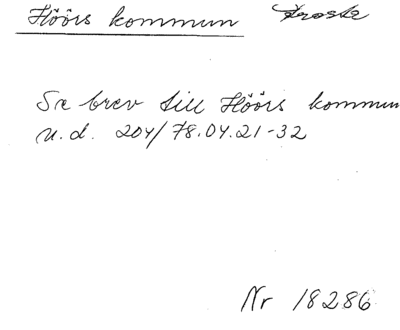 Höörs kommun
Se brev till Höörs kommun
u.d. 204/78.04.21-32
Nr 18286